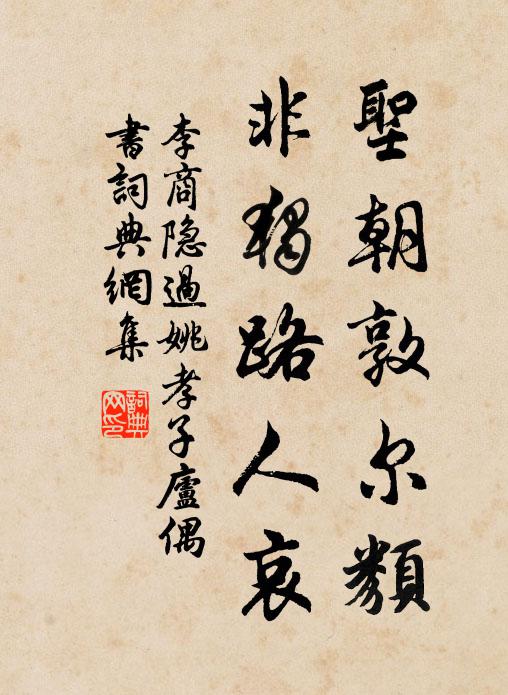 聖朝敦尔類
非獨路人哀
李商隐過姚孝子廬偶
書詞典網集
詞典
网印